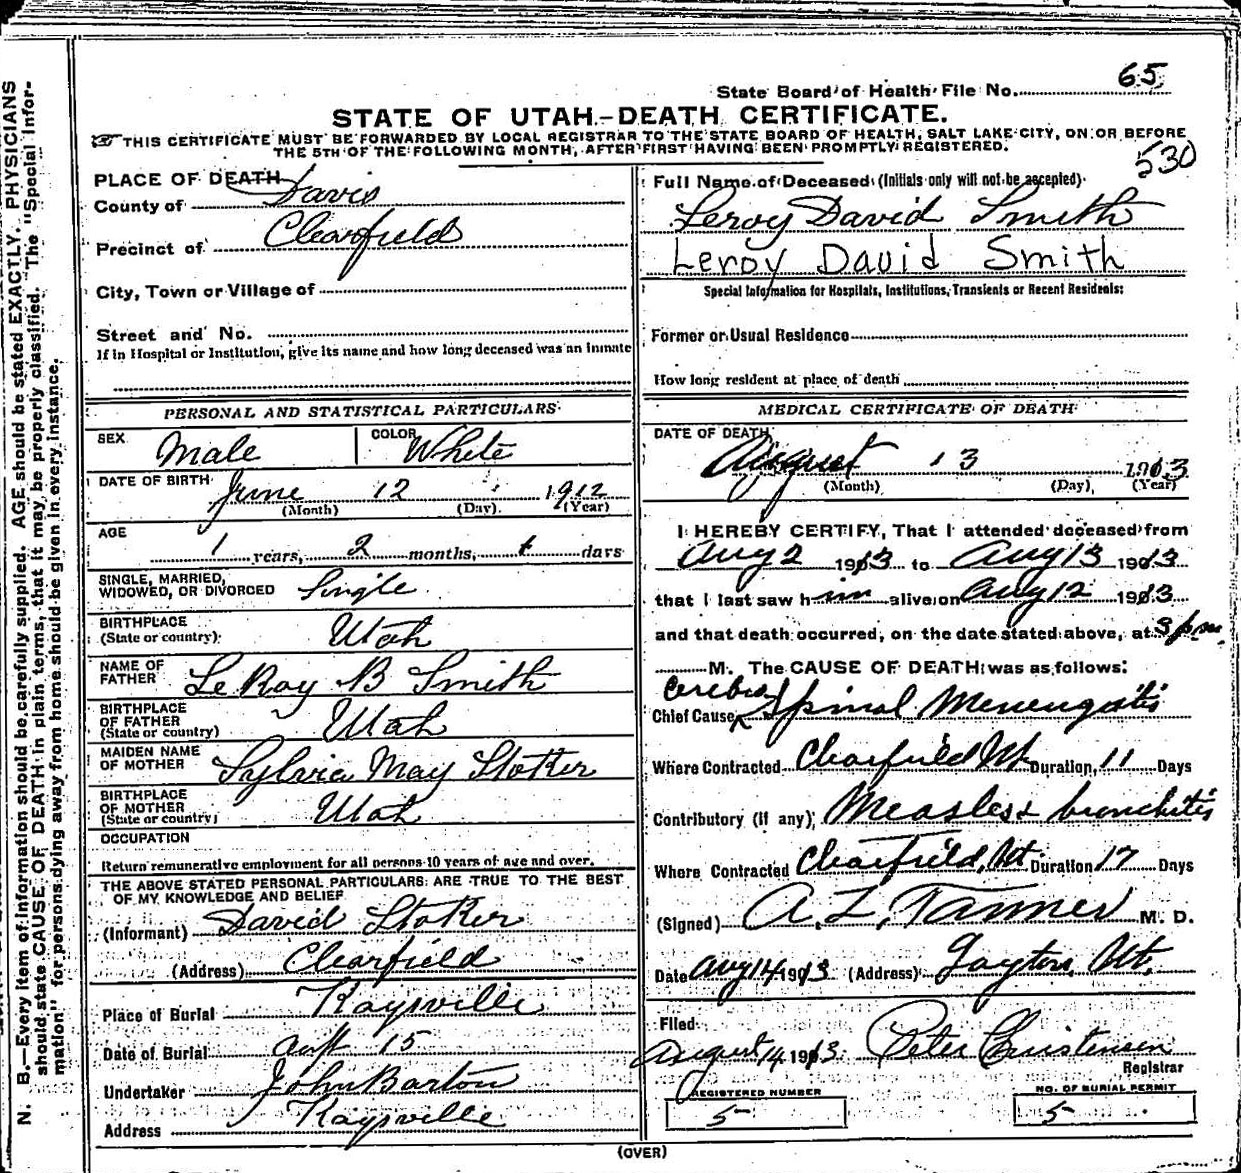 State Board of Health File No. 65
STATE OF UTAH—DEATH CERTIFICATE.
THIS CERTIFICATE MUST BE FORWARDED BY LOCAL REGISTRAR TO THE STATE BOARD OF HEALTH, SALT LAKE CITY, ON OR BEFORE
THE 5TH OF THE FOLLOWING MONTH, AFTER FIRST HAVING BEEN PROMPTLY REGISTERED.
530
PLACE OF DEATH
County of Davis
Precinct of Clearfield
City, Town or Village of
Street and No.
If in Hospital or Institution, give its name and how long deceased was an inmate
PERSONAL AND STATISTICAL PARTICULARS
SEX Male COLOR White
DATE OF BIRTH June 12 1912
(Month) (Day) (Year)
AGE 1 years, 2 months, 1 days
SINGLE, MARRIED,
WIDOWED, OR DIVORCED Single
BIRTHPLACE
(State or country) Utah
NAME OF
FATHER LeRoy B Smith
BIRTHPLACE
OF FATHER
(State or country) Utah
MAIDEN NAME
OF MOTHER Sylvia May Stoker
BIRTHPLACE
OF MOTHER
(State or country) Utah
OCCUPATION
Return remunerative employment for all persons 10 years of age and over.
THE ABOVE STATED PERSONAL PARTICULARS ARE TRUE TO THE BEST
OF MY KNOWLEDGE AND BELIEF
(Informant) David Stoker
(Address) Clearfield
Place of Burial Kaysville
Date of Burial 15
Undertaker John Barton
Address Kaysville
Full Name of Deceased (Initials only will not be accepted)
Leroy David Smith
Leroy David Smith
Special Information for Hospitals, Institutions, Transients or Recent Residents:
Former or Usual Residence
How long resident at place of death
MEDICAL CERTIFICATE OF DEATH
DATE OF DEATH
August 13 1913
(Month) (Day) (Year)
I HEREBY CERTIFY, That I attended deceased from
Aug 2 1913 to Aug 13 1913
that I last saw him alive on Aug 12 1913
and that death occurred, on the date stated above, at 3 pm
M. The CAUSE OF DEATH was as follows:
Chief Cause Cerebro Spinal Menengitis
Where Contracted Clearfield Ut Duration 11 Days
Contributory (if any) Measles & bronchitis
Where Contracted Clearfield, Ut Duration 17 Days
(Signed) A. L. Tanner M. D.
Date Aug 14 1913 (Address) Layton, Ut.
Filed
August 14 1913 Peter Christensen
Registrar
REGISTERED NUMBER
5
NO. OF BURIAL PERMIT
5
(OVER)
N. B.—Every item of information should be carefully supplied. AGE should be stated EXACTLY. PHYSICIANS
should state CAUSE OF DEATH in plain terms, that it may be properly classified. The "Special Infor-
mation" for persons dying away from home should be given in every instance.